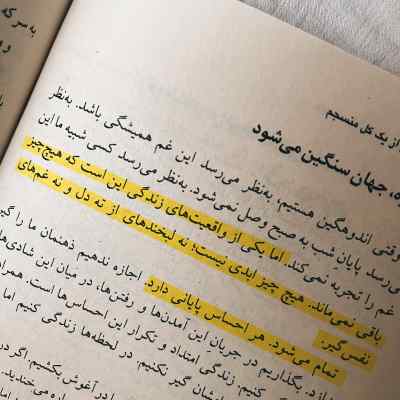 به سر که
و ه
از یک کل منسجم
ره، جهان سنگین می‌شود
وقتی اندوهگین هستیم، به‌نظر می‌رسد این غم همیشگی باشد. به‌نظر
می‌رسد پایان شب به صبح وصل نمی‌شود. به‌نظر می‌رسد کسی شبیه ما این
غم را تجربه نمی‌کند. اما یکی از واقعیت‌های زندگی این است که هیچ‌چیز
باقی نمی‌ماند. هیچ چیز ابدی نیست؛ نه لبخندهای از ته دل و نه غم‌های
نفس‌گیر.
تمام می‌شود. هر احساس پایانی دارد. اجازه ندهیم ذهنمان ما را گیر
بگذاریم در جریان این آمدن‌ها و رفتن‌ها، در میان این شادی‌ها
گیر نکنیم. زندگی امتداد و تکرار این احساس‌ها است. همراه
کنیم. در لحظه‌ها زندگی کنیم اما
در آغوش بکشیم. اگر در
می‌خندید.